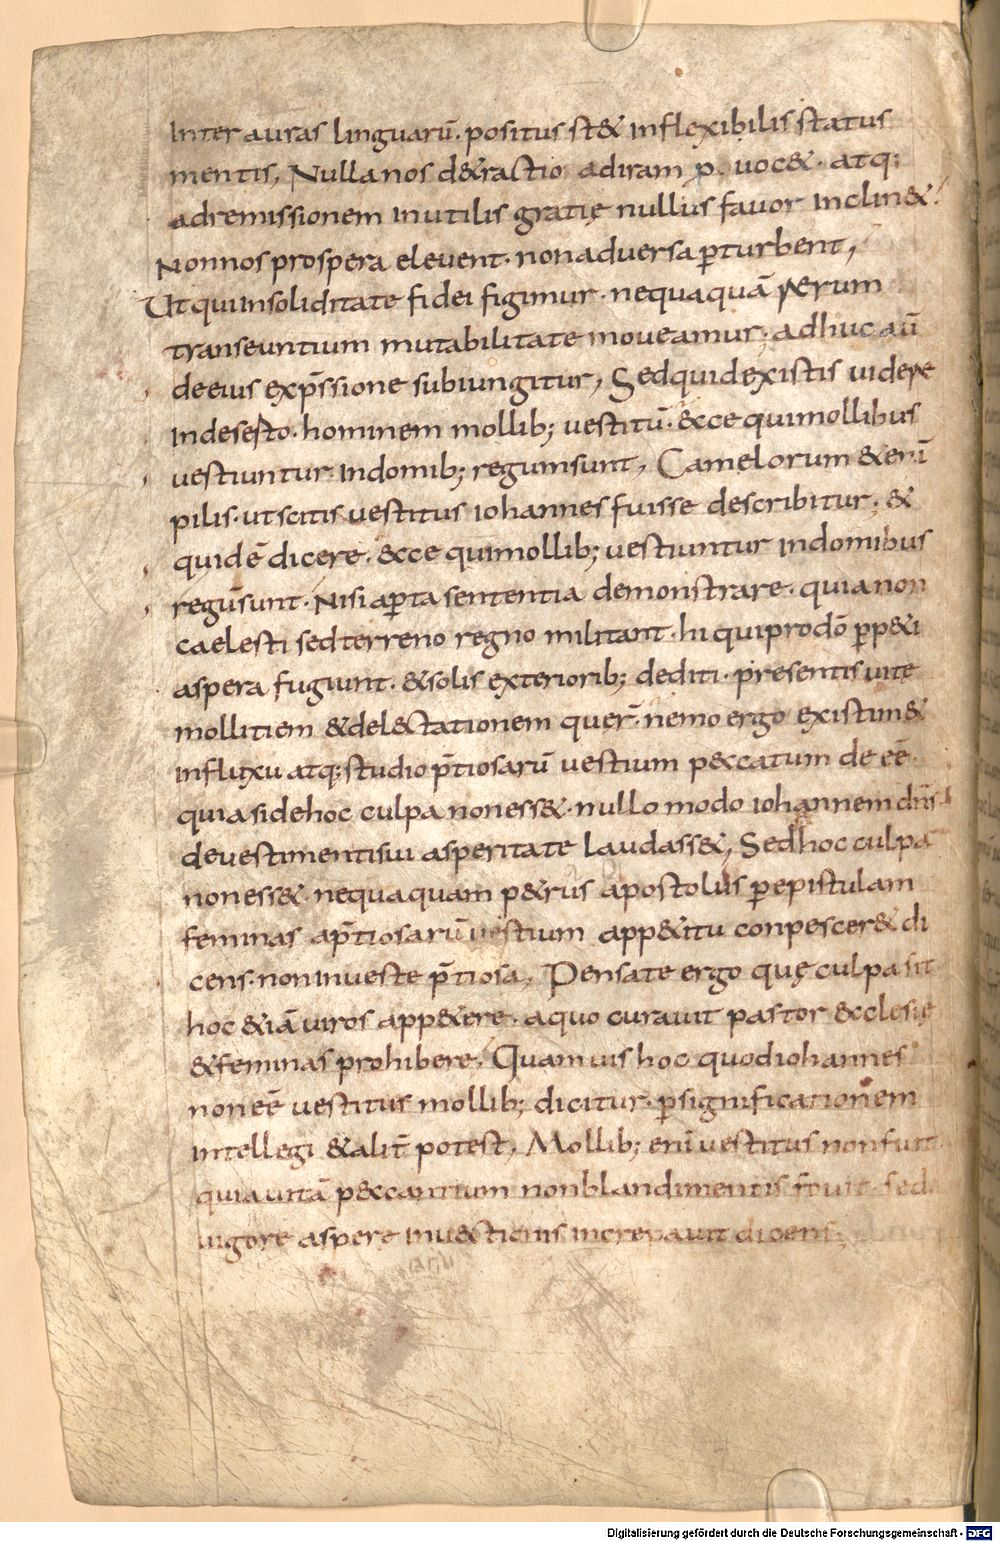 Inter auras linguarū. positus st& inflexibilis status
mentis, Nulla nos d&ractio adiram p.uoc&. atq;
adremissionem inutilis gratię nullius fauor inclin&.
Nonnos prospera eleuent. nonaduersa p̄turbent,
Ut quiinsoliditate fidei figimur. nequaquā rerum
transeuntium mutabilitate moueamur; adhuc aū
deeius exp̄ssione subiungitur, Sedquidexistis uidere
indeserto. hominem mollib; uestitū. &cce quimollibus
uestiuntur indomib; regumsunt, Camelorum &enī
pilis. utscitis uestitus iohannes fuisse describitur; &
quidē dicere. &cce quimollib; uestiuntur indomibus
regūsunt. Nisi ap̄ta sententia demonstrare. quianon
caelesti sedterreno regno militant. hi quiprodō p̄p&i
aspera fugiunt. &solis exteriorib; dediti. presentisuitę
mollitiem &del&ctationem quer̄. nemo ergo existim&
influxu atq; studio p̄tiosarū uestium p&ccatum de eē.
quiasidehoc culpa noness&. nullo modo iohannem dn̄s
deuestimentisui asperitate laudass&, Sedhoc culpa
noness&. nequaquam p&rus apostolus p̄epistulam
feminas ap̄tiosarū uestium app&itu conpescer& di
cens. noninueste p̄tiosa, Pensate ergo quę culpa sit
hoc &iā uiros app&ere. aquo curauit pastor &cclesię
&feminas prohibere, Quamuis hoc quodiohannes
non eē uestitus mollib; dicitur. p̄significationem
intellegi &alit̄ potest, Mollib; enī uestitus nonfuit
quiauitā p&ccantium nonblandimentis fouit. sed
uigore asperę inu&ctionis increpauit dicens;
Digitalisierung gefördert durch die Deutsche Forschungsgemeinschaft - DFG